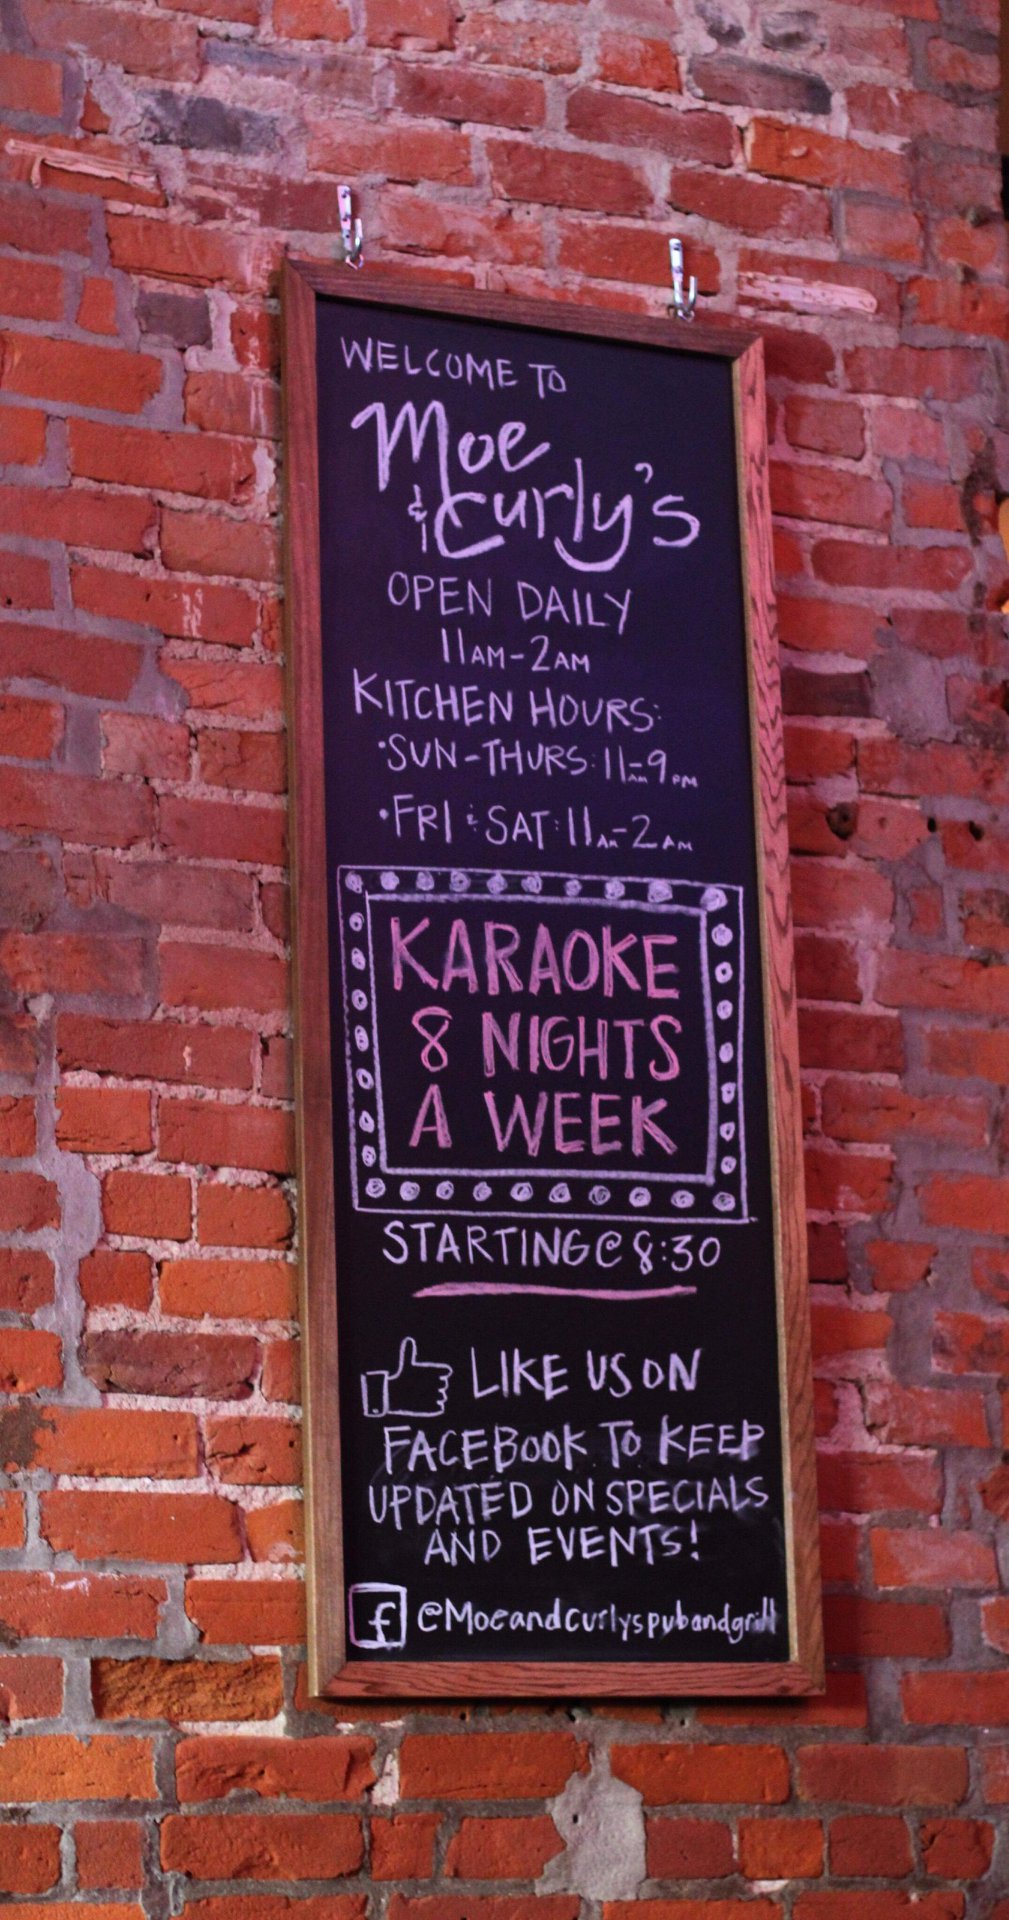 WELCOME TO
Moe
& Curly's
OPEN DAILY
11AM-2AM
KITCHEN HOURS:
•SUN-THURS: 11AM-9PM
•FRI & SAT: 11AM-2AM
KARAOKE
8 NIGHTS
A WEEK
STARTING @ 8:30
LIKE US ON
FACEBOOK TO KEEP
UPDATED ON SPECIALS
AND EVENTS!
f @Moeandcurlyspubandgrill